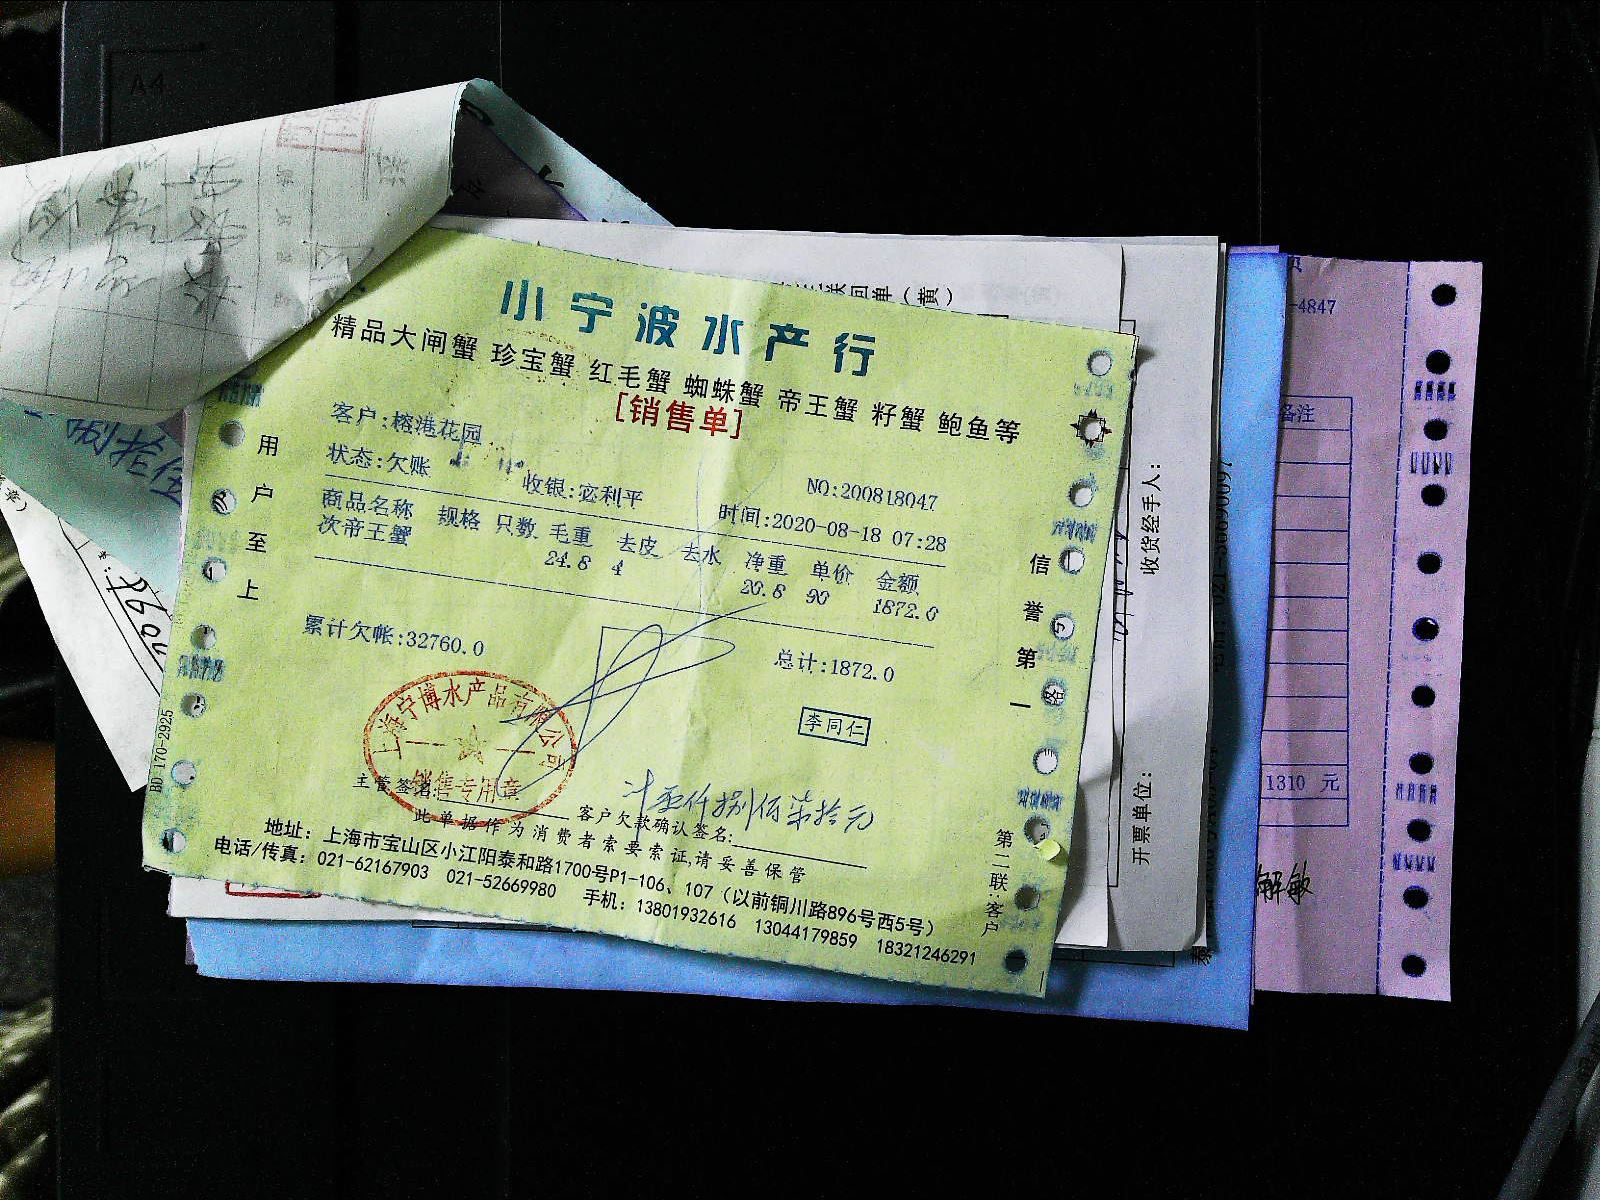 小宁波水产行
精品大闸蟹 珍宝蟹 红毛蟹 蜘蛛蟹 帝王蟹 籽蟹 鲍鱼等
[销售单]
客户:榕港花园
状态:欠账 收银:宓利平 NO:200818047
时间:2020-08-18 07:28
商品名称 规格 只数 毛重 去皮 去水 净重 单价 金额
次帝王蟹 24.8 4 20.8 90 1872.0
累计欠帐:32760.0 总计:1872.0
李同仁
上海宁博水产品有限公司
销售专用章
主管签名:
客户欠款确认签名:
此单据作为消费者索要索证,请妥善保管
地址：上海市宝山区小江阳泰和路1700号P1-106、107（以前铜川路896号西5号）
电话/传真：021-62167903 021-52669980 手机：13801932616 13044179859 18321246291
用户至上
信誉第一
第二联:客户
BD 170-2925
回单（黄）
收货经手人：
开票单位：
-4847
备注
1310 元
解敏
A4